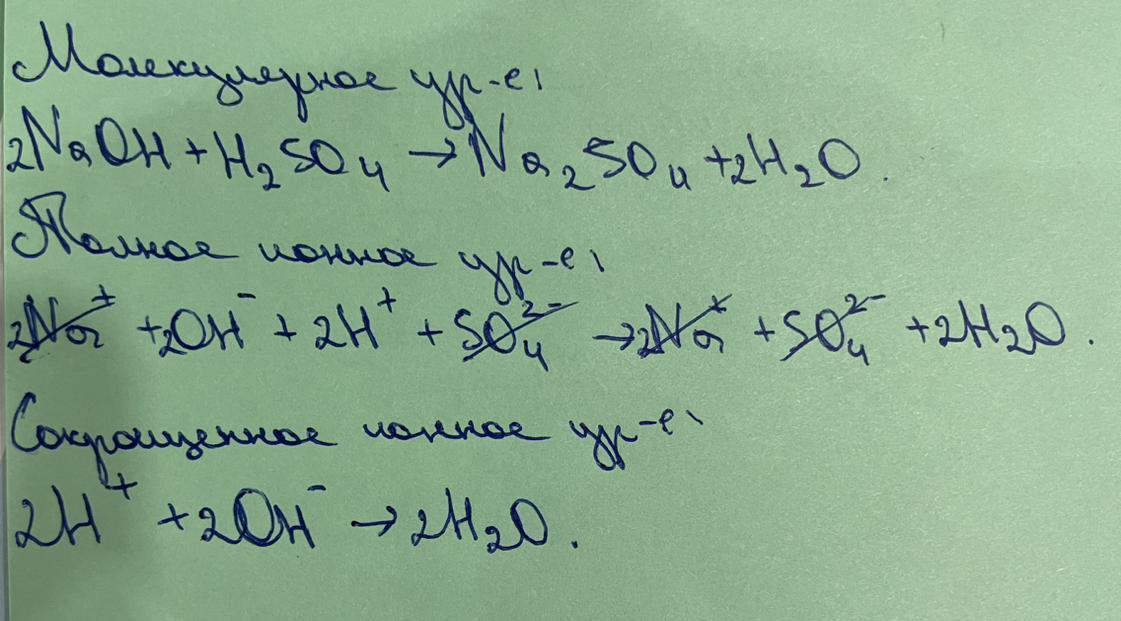 Молекулярное ур-е:
2NaOH + H₂SO₄ → Na₂SO₄ + 2H₂O.
Полное ионное ур-е:
2Na⁺ + 2OH⁻ + 2H⁺ + SO₄²⁻ → 2Na⁺ + SO₄²⁻ + 2H₂O.
Сокращенное ионное ур-е:
2H⁺ + 2OH⁻ → 2H₂O.